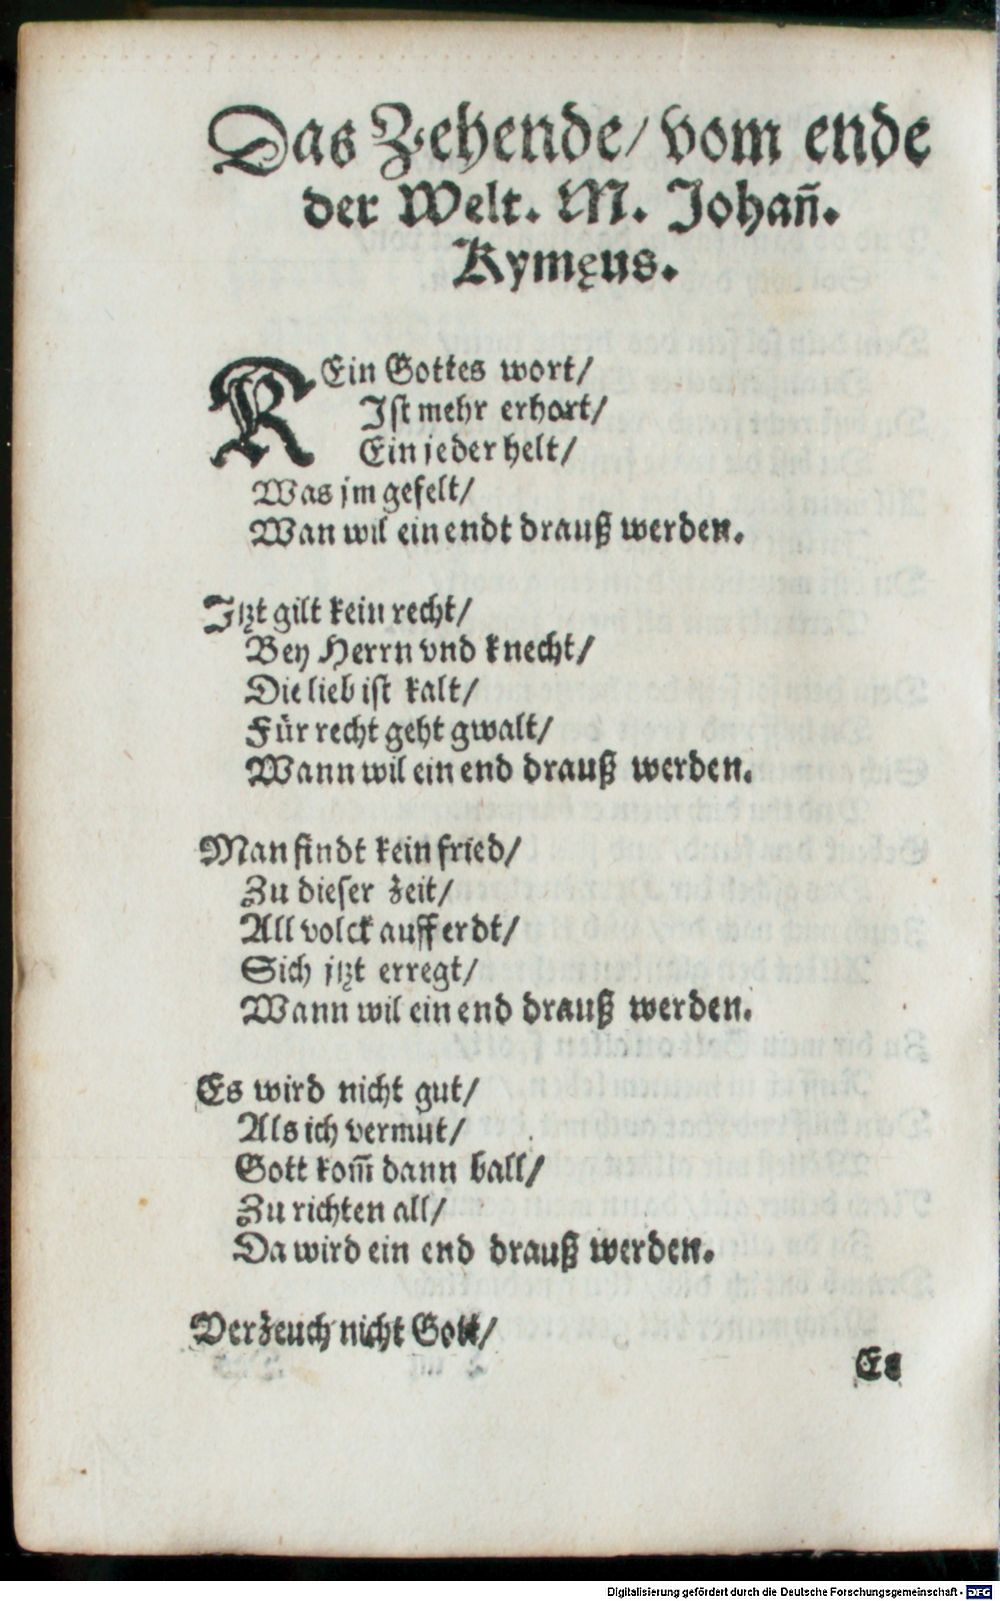 Das Zehende/ vom ende
der Welt. M. Johan̄.
Kymęus.
KEin Gottes wort/
Ist mehr erhort/
Ein jeder helt/
Was jm gefelt/
Wan wil ein endt drauß werden.
Jtzt gilt kein recht/
Bey Herrn vnd knecht/
Die lieb ist kalt/
Für recht geht gwalt/
Wann wil ein end drauß werden.
Man findt kein fried/
Zu dieser zeit/
All volck auff erdt/
Sich jtzt erregt/
Wann wil ein end drauß werden.
Es wird nicht gut/
Als ich vermut/
Gott kom̄ dann ball/
Zu richten all/
Da wird ein end drauß werden.
Verzeuch nicht Gott/
Es
Digitalisierung gefördert durch die Deutsche Forschungsgemeinschaft - DFG